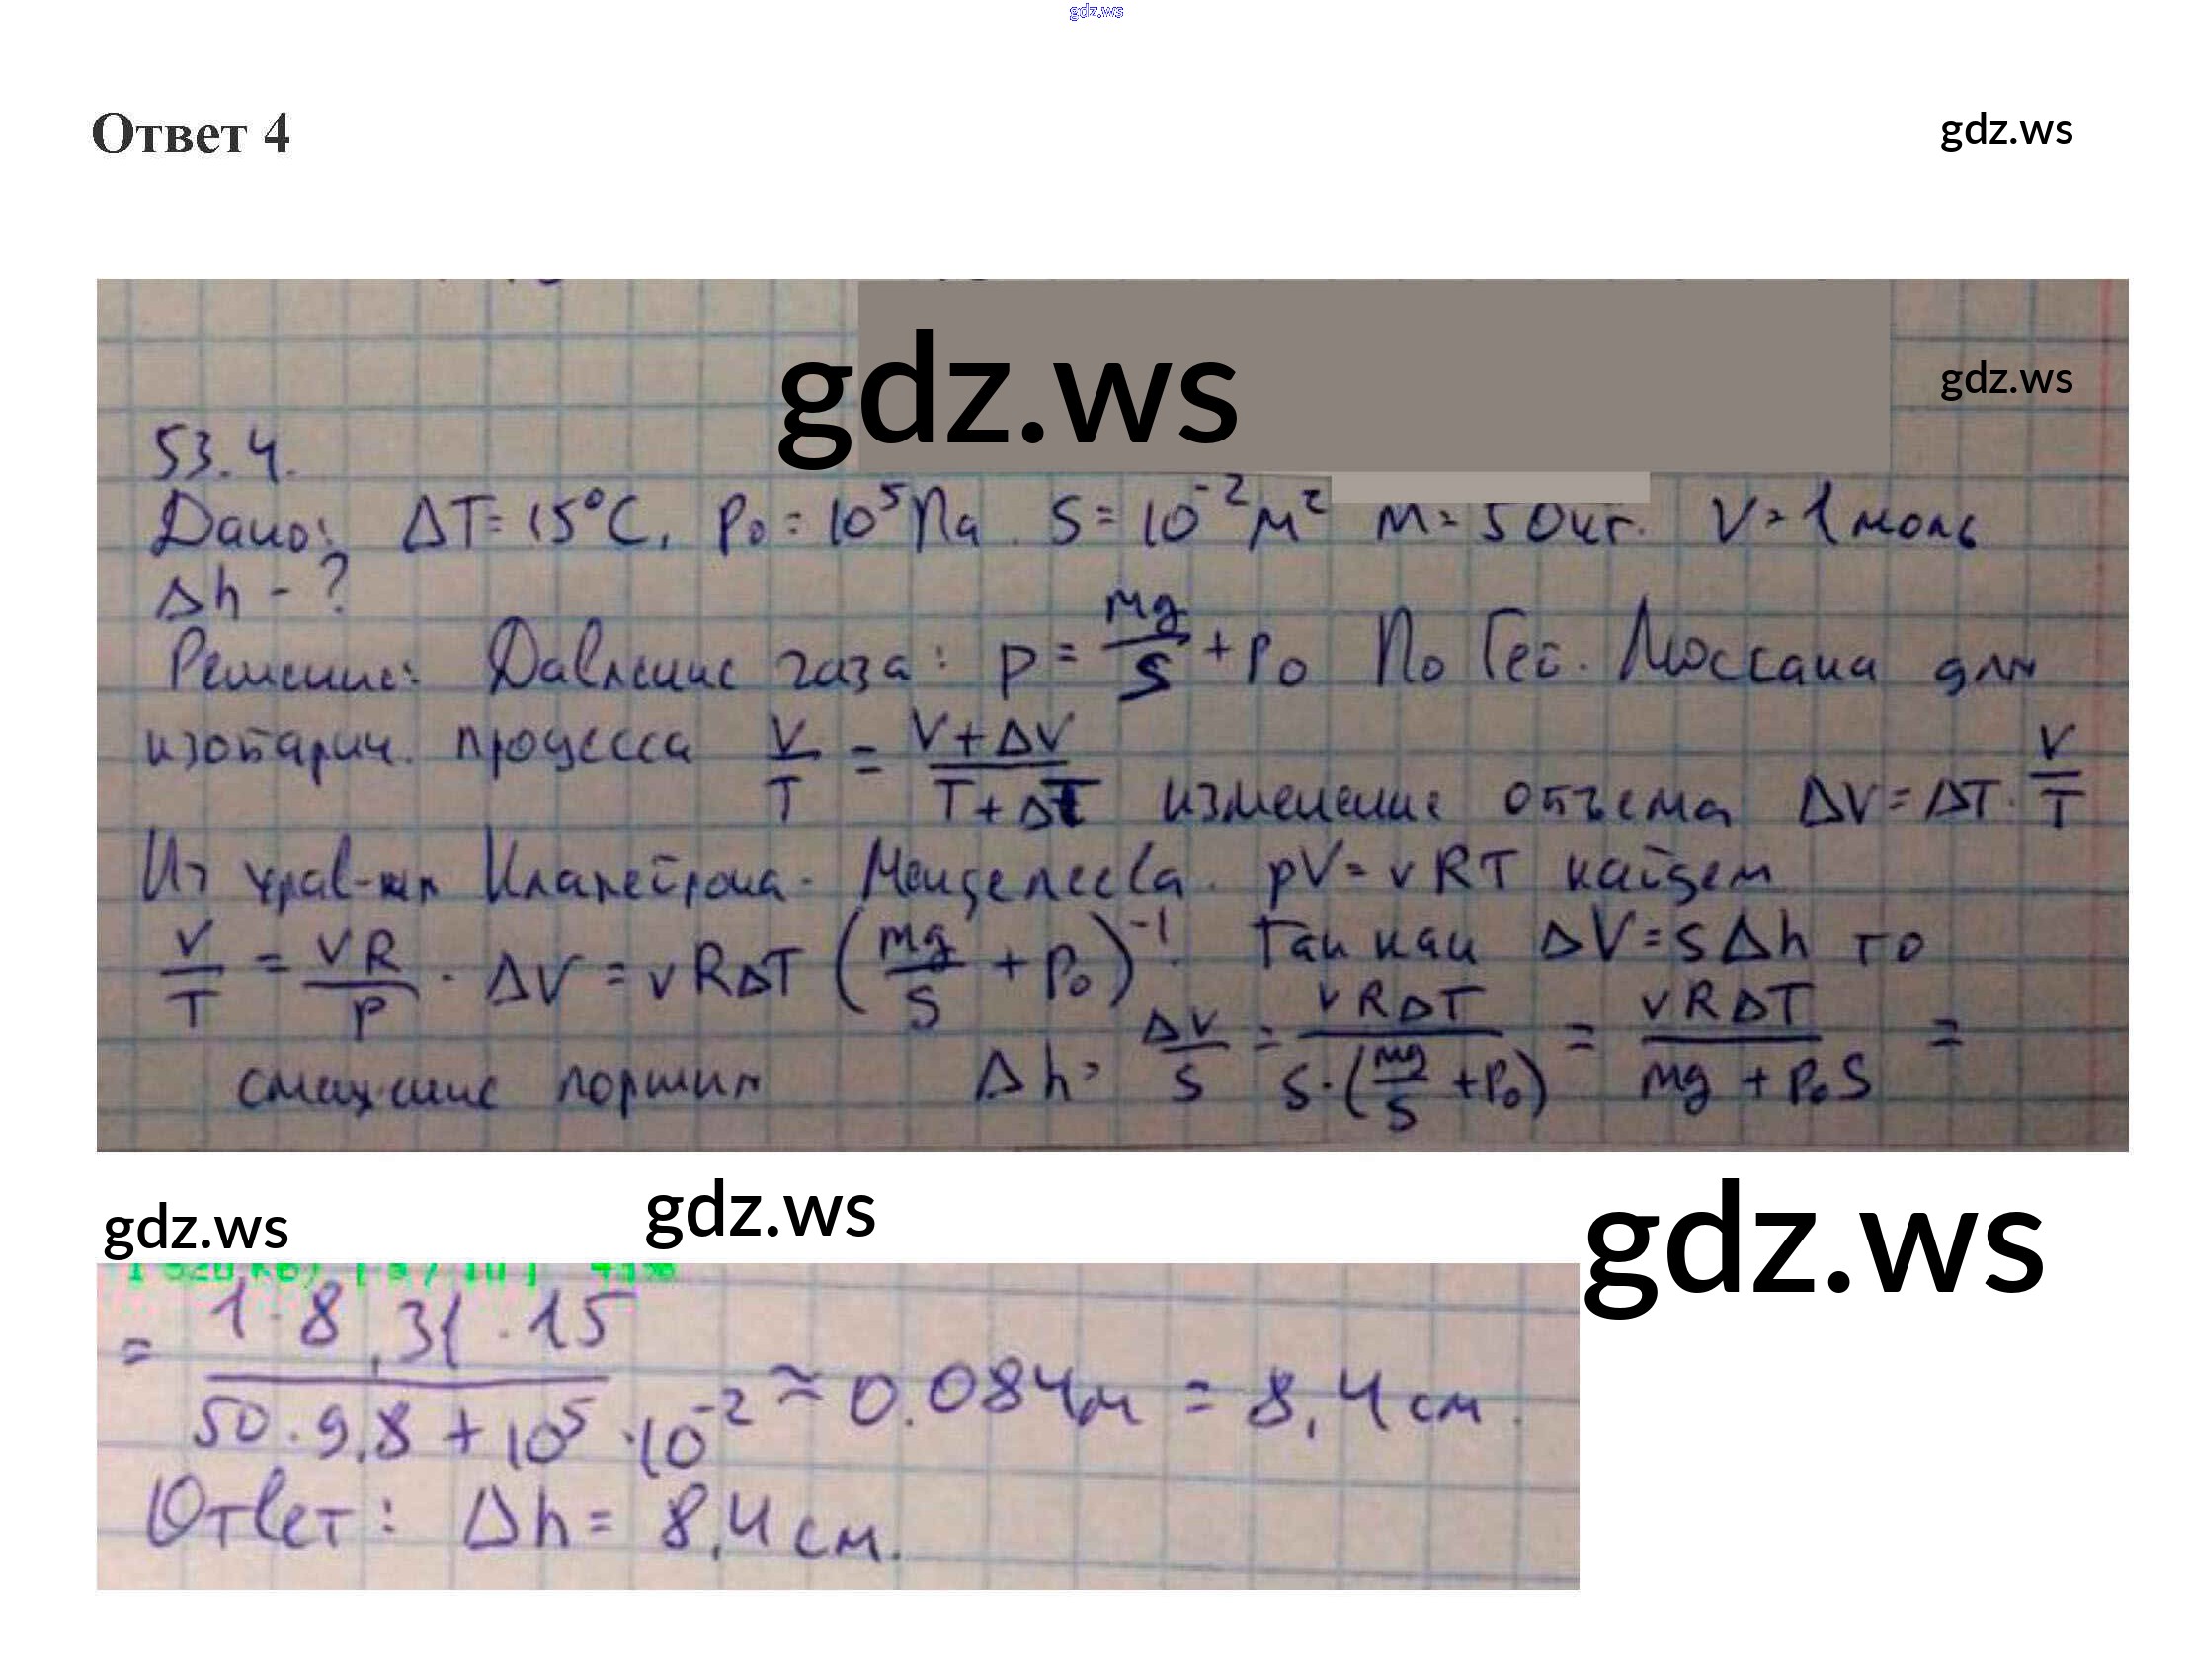 gdz.ws
Ответ 4
gdz.ws
gdz.ws
gdz.ws
53.4.
Дано: ΔT = 15°C, p₀ = 10⁵ Па. S = 10⁻² м² m = 50 кг. ν = 1 моль
Δh - ?
Решение: Давление газа: p = mg/S + p₀ По Гей. Люссака для
изобарич. процесса V/T = (V+ΔV)/(T+ΔT) изменение объема ΔV = ΔT · V/T
Из урав-ия Клапейрона - Менделеева. pV = νRT найдем
V/T = νR/p · ΔV = νRΔT (mg/S + p₀)⁻¹. Так как ΔV = SΔh то
смещение поршня Δh = ΔV/S = νRΔT/(S·(mg/S + p₀)) = νRΔT/(mg + p₀S) =
gdz.ws
gdz.ws
gdz.ws
= (1·8,31·15)/(50·9,8 + 10⁵·10⁻²) ≈ 0.084м = 8,4 см.
Ответ: Δh = 8,4 см.